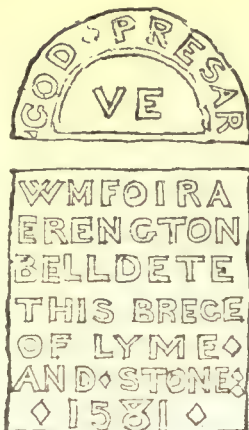 GOD ◇ PRESAR
VE
WMFOIRA
ERENGTON
BELLDETE
THIS BREGE
OF LYME ◇
AND ◇ STONE ◇
◇ 1581 ◇